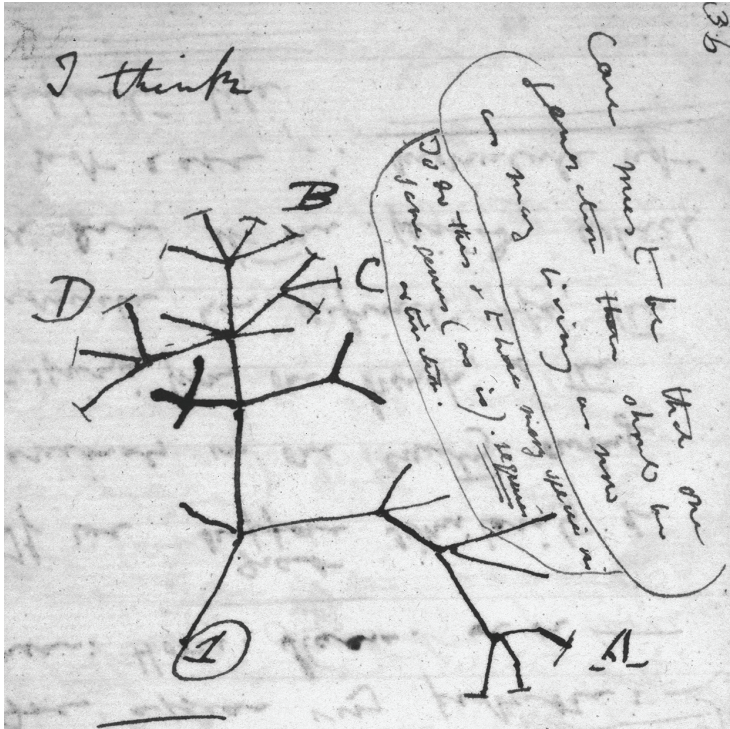 I think
36
B
D
C
A
1
Case must be that one
generation then should be
as many living as now
To do this & to have many species in
same genus (as is). requires
extinction.